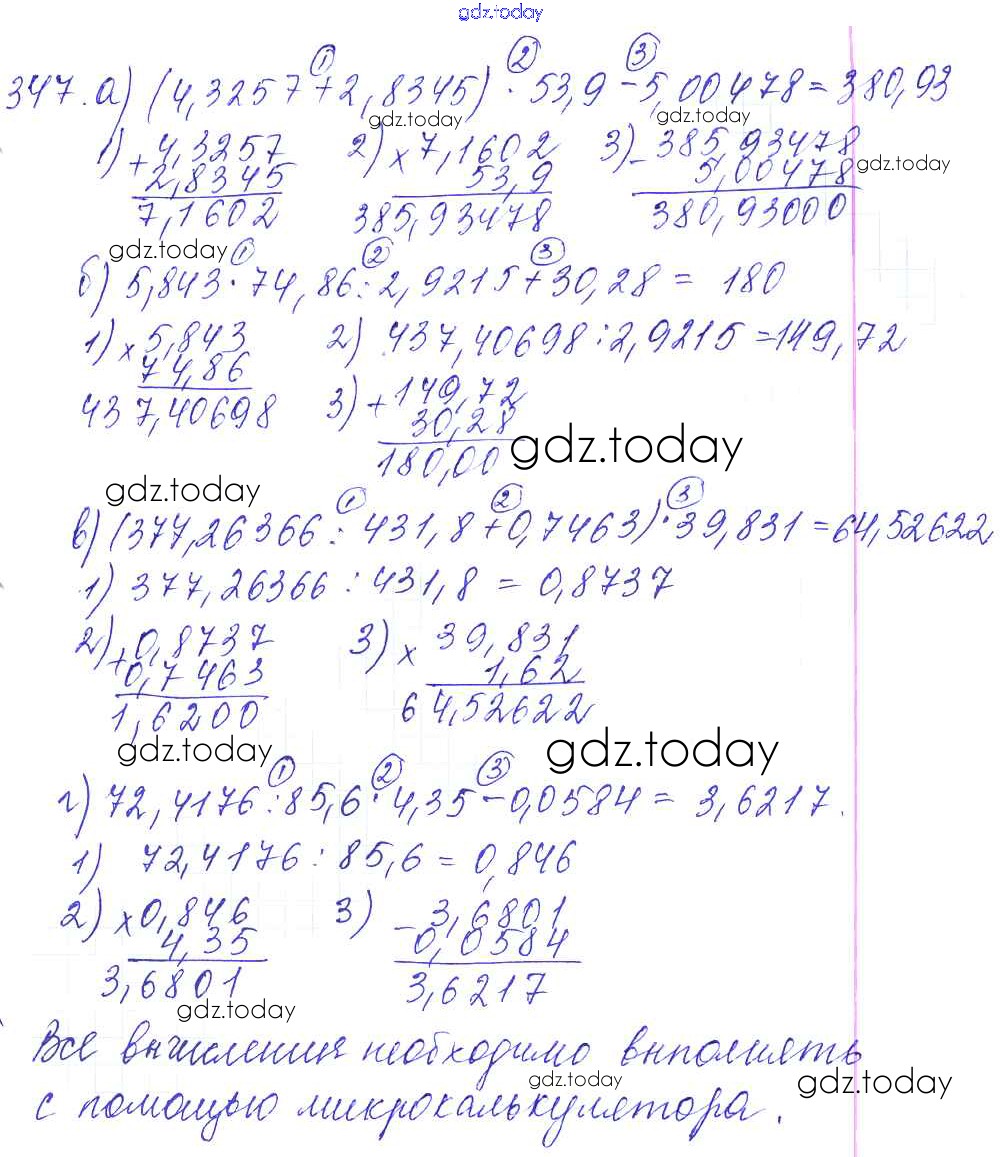 gdz.today
347. а) (4,3257 + 2,8345) · 53,9 - 5,00478 = 380,93
① ② ③
gdz.today gdz.today
1) + 4,3257 2) × 7,1602 3) - 385,93478
2,8345 53,9 5,00478
gdz.today
7,1602 385,93478 380,93000
gdz.today
① ② ③
б) 5,843 · 74,86 : 2,9215 + 30,28 = 180
1) × 5,843 2) 437,40698 : 2,9215 = 149,72
74,86
437,40698 3) + 149,72
30,28
180,00
gdz.today
gdz.today
① ② ③
в) (377,26366 : 431,8 + 0,7463) · 39,831 = 64,52622
1) 377,26366 : 431,8 = 0,8737
2) + 0,8737 3) × 39,831
0,7463 1,62
1,6200 64,52622
gdz.today gdz.today
① ② ③
г) 72,4176 : 85,6 · 4,35 - 0,0584 = 3,6217.
1) 72,4176 : 85,6 = 0,846
2) × 0,846 3) - 3,6801
4,35 0,0584
3,6801 3,6217
gdz.today
Все вычисления необходимо выполнять
gdz.today gdz.today
с помощью микрокалькулятора.